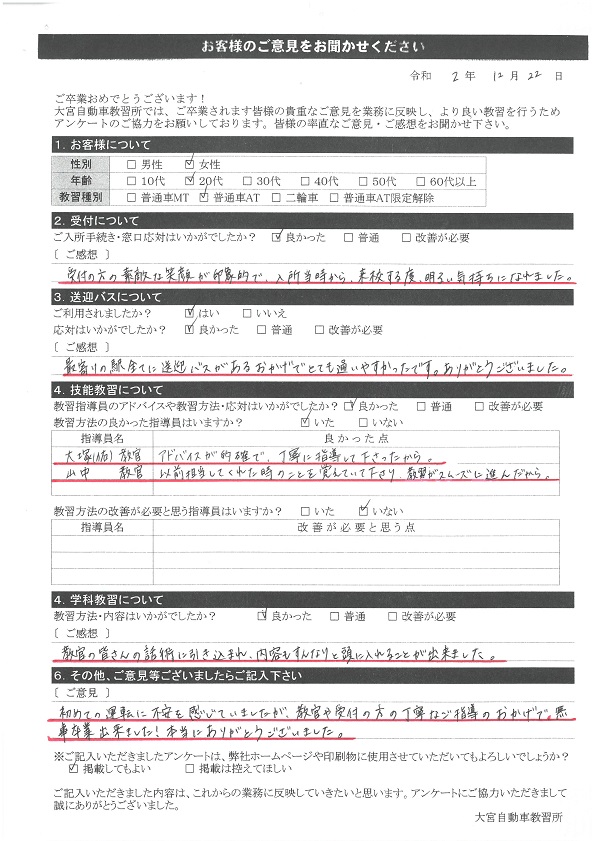 お客様のご意見をお聞かせください
令和 2 年 12 月 22 日
ご卒業おめでとうございます！
大宮自動車教習所では、ご卒業されます皆様の貴重なご意見を業務に反映し、より良い教習を行うため
アンケートのご協力をお願いしております。皆様の率直なご意見・ご感想をお聞かせ下さい。
1. お客様について
性別 □ 男性 ☑ 女性
年齢 □ 10代 ☑ 20代 □ 30代 □ 40代 □ 50代 □ 60代以上
教習種別 □ 普通車MT ☑ 普通車AT □ 二輪車 □ 普通車AT限定解除
2. 受付について
ご入所手続き・窓口応対はいかがでしたか？ ☑ 良かった □ 普通 □ 改善が必要
〔 ご感想 〕
受付の方の素敵な笑顔が印象的で、入所当時から、来校する度、明るい気持ちになれました。
3. 送迎バスについて
ご利用されましたか？ ☑ はい □ いいえ
応対はいかがでしたか？ ☑ 良かった □ 普通 □ 改善が必要
〔 ご感想 〕
最寄りの駅全てに送迎バスがあるおかげでとても通いやすかったです。ありがとうございました。
4. 技能教習について
教習指導員のアドバイスや教習方法・応対はいかがでしたか？ ☑ 良かった □ 普通 □ 改善が必要
教習方法の良かった指導員はいますか？ ☑ いた □ いない
指導員名 良かった点
大塚() 教官 アドバイスが的確で、丁寧に指導して下さったから。
山中 教官 以前担当してくれた時のことを覚えていて下さり、教習がスムーズに進んだから。
教習方法の改善が必要と思う指導員はいますか？ □ いた ☑ いない
指導員名 改善が必要と思う点
4. 学科教習について
教習方法・内容はいかがでしたか？ ☑ 良かった □ 普通 □ 改善が必要
〔 ご感想 〕
教官の皆さんの話術に引き込まれ、内容もすんなりと頭に入れることが出来ました。
6. その他、ご意見等ございましたらご記入下さい
〔 ご意見 〕
初めての運転に不安を感じていましたが、教官や受付の方の丁寧なご指導のおかげで、無
事卒業出来ました！本当にありがとうございました。
※ご記入いただきましたアンケートは、弊社ホームページや印刷物に使用させていただいてもよろしいでしょうか？
☑ 掲載してもよい □ 掲載は控えてほしい
ご記入いただきました内容は、これからの業務に反映していきたいと思います。アンケートにご協力いただきまして
誠にありがとうございました。
大宮自動車教習所